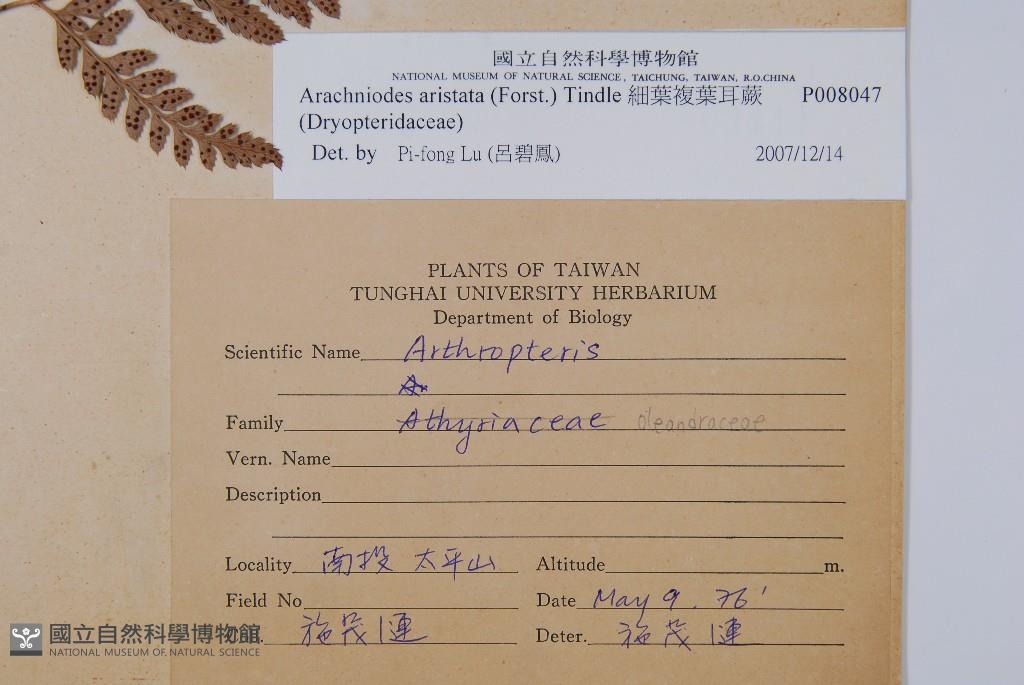 國立自然科學博物館
NATIONAL MUSEUM OF NATURAL SCIENCE, TAICHUNG, TAIWAN, R.O.CHINA
Arachniodes aristata (Forst.) Tindle 細葉複葉耳蕨 P008047
(Dryopteridaceae)
Det. by Pi-fong Lu (呂碧鳳) 2007/12/14
PLANTS OF TAIWAN
TUNGHAI UNIVERSITY HERBARIUM
Department of Biology
Scientific Name Arthropteris
Family Athyriaceae oleandraceae
Vern. Name
Description
Locality 南投 太平山 Altitude m.
Field No Date May 9. 76'
施茂 Deter. 施茂
國立自然科學博物館
NATIONAL MUSEUM OF NATURAL SCIENCE